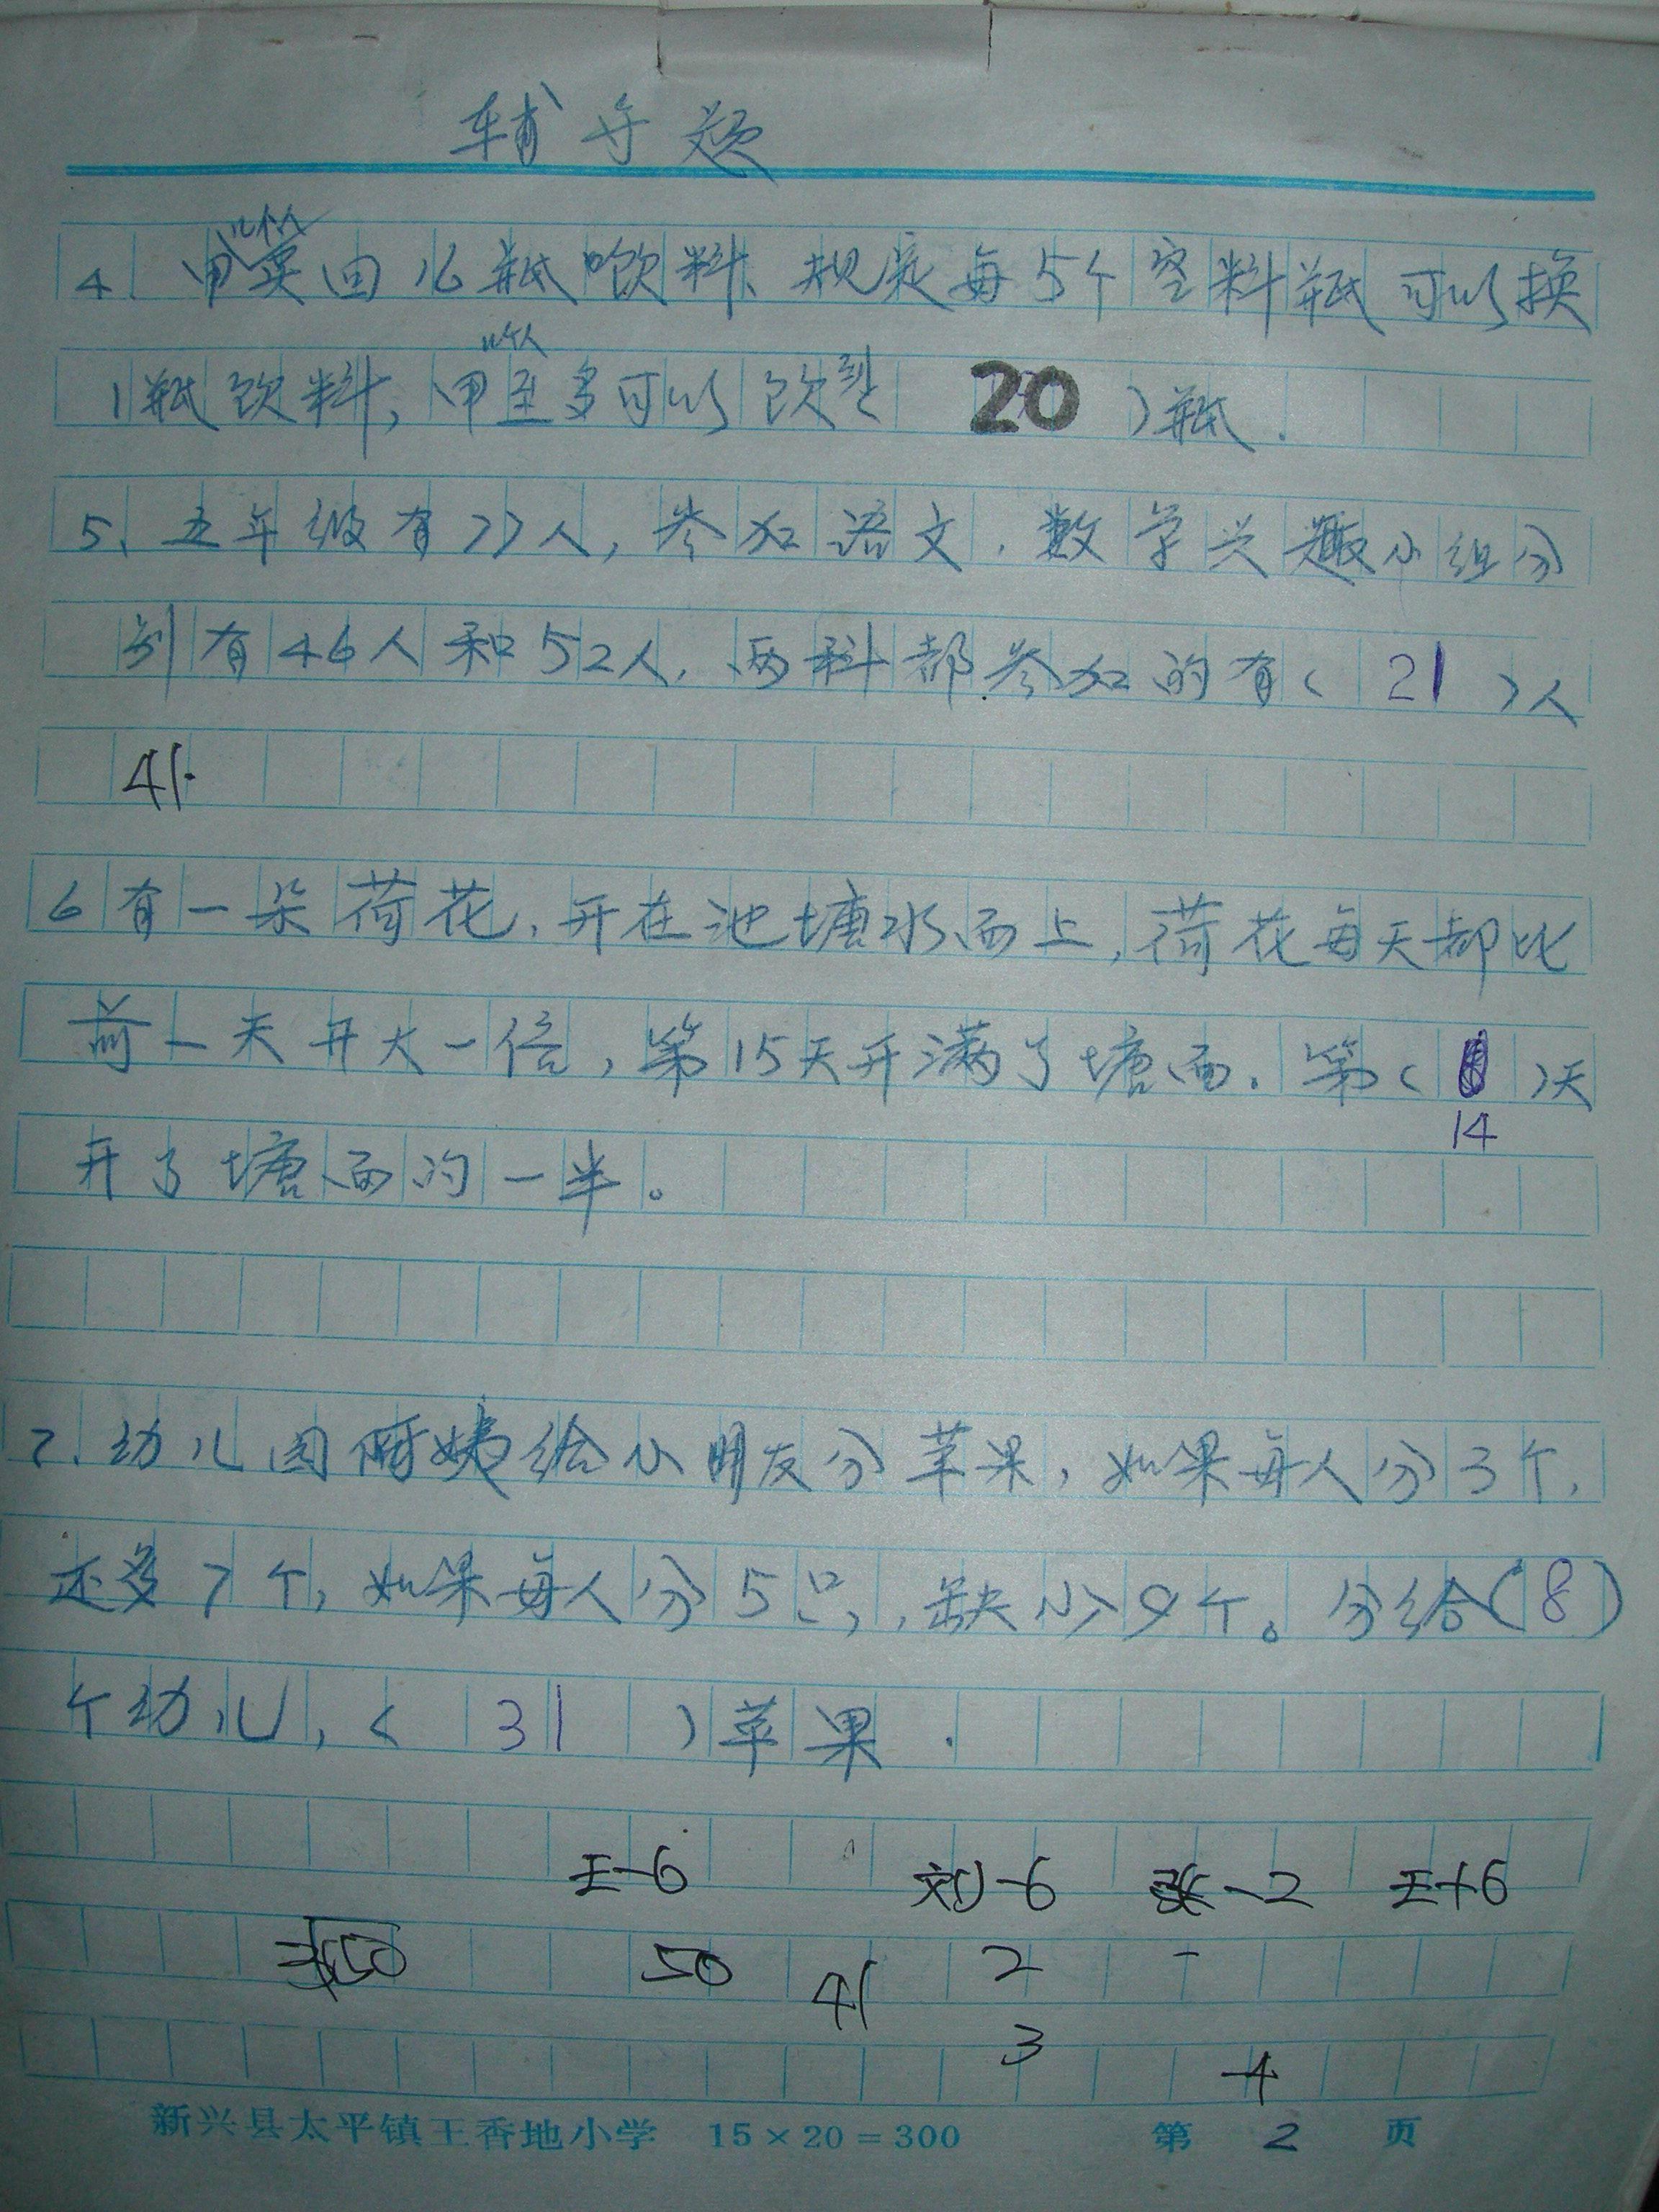 辅导题
4. 甲买回16瓶饮料、规定每5个空料瓶可以换
1瓶饮料,甲至多可以饮到 20 )瓶.
5、五年级有77人,参加语文.数学兴趣小组分
别有46人和52人,两科都参加的有( 21 )人
41.
6 有一朵荷花,开在池塘水面上,荷花每天都比
前一天开大一倍,第15天开满了塘面.第( )天
14
开了塘面的一半。
7.幼儿园阿姨给小朋友分苹果,如果每人分3个,
还多7个,如果每人分5只,缺少9个。分给(8)
个幼儿,( 31 )苹果.
王-6 刘-6 张-2 王+6
50 50 41 2 -
3 4
新兴县太平镇王香地小学 15×20=300 第 2 页